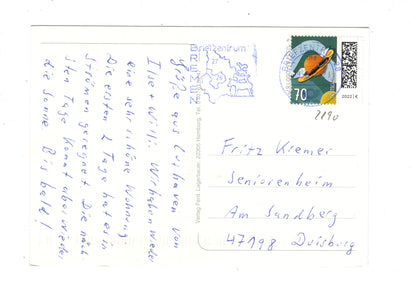 Grüße aus Cuxhaven von
Ilse + Willi. Wir haben wieder
eine sehr schöne Wohnung.
Die ersten 2 Tage hat es in
Strömen geregnet. Die näch
sten Tage kommt aber wieder
die Sonne. Bis bald!
Briefzentrum
70
2022 | €
2190
Fritz Kremer
Seniorenheim
Am Sandberg
47198 Duisburg